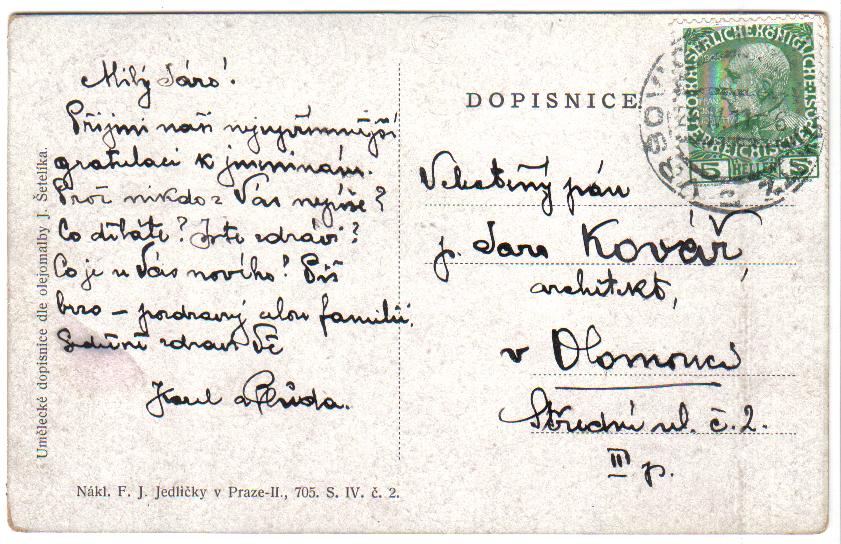 DOPISNICE
Milý Járo!
Přijmi naši nejupřímnější
gratulaci k jmeninám.
Proč nikdo z Vás nepíše?
Co děláte? Jste zdrávi?
Co je u Vás nového? Piš
brzo – pozdravuj celou familii.
Srdečně zdraví Vás
Karel a Růda.
Velectěný pán
p. Jaro Kovář,
architekt,
v Olomouci
Střední ul. č. 2.
III p.
Umělecké dopisnice dle olejomalby J. Šetelíka.
Nákl. F. J. Jedličky v Praze-II., 705. S. IV. č. 2.
5 HELLER 5